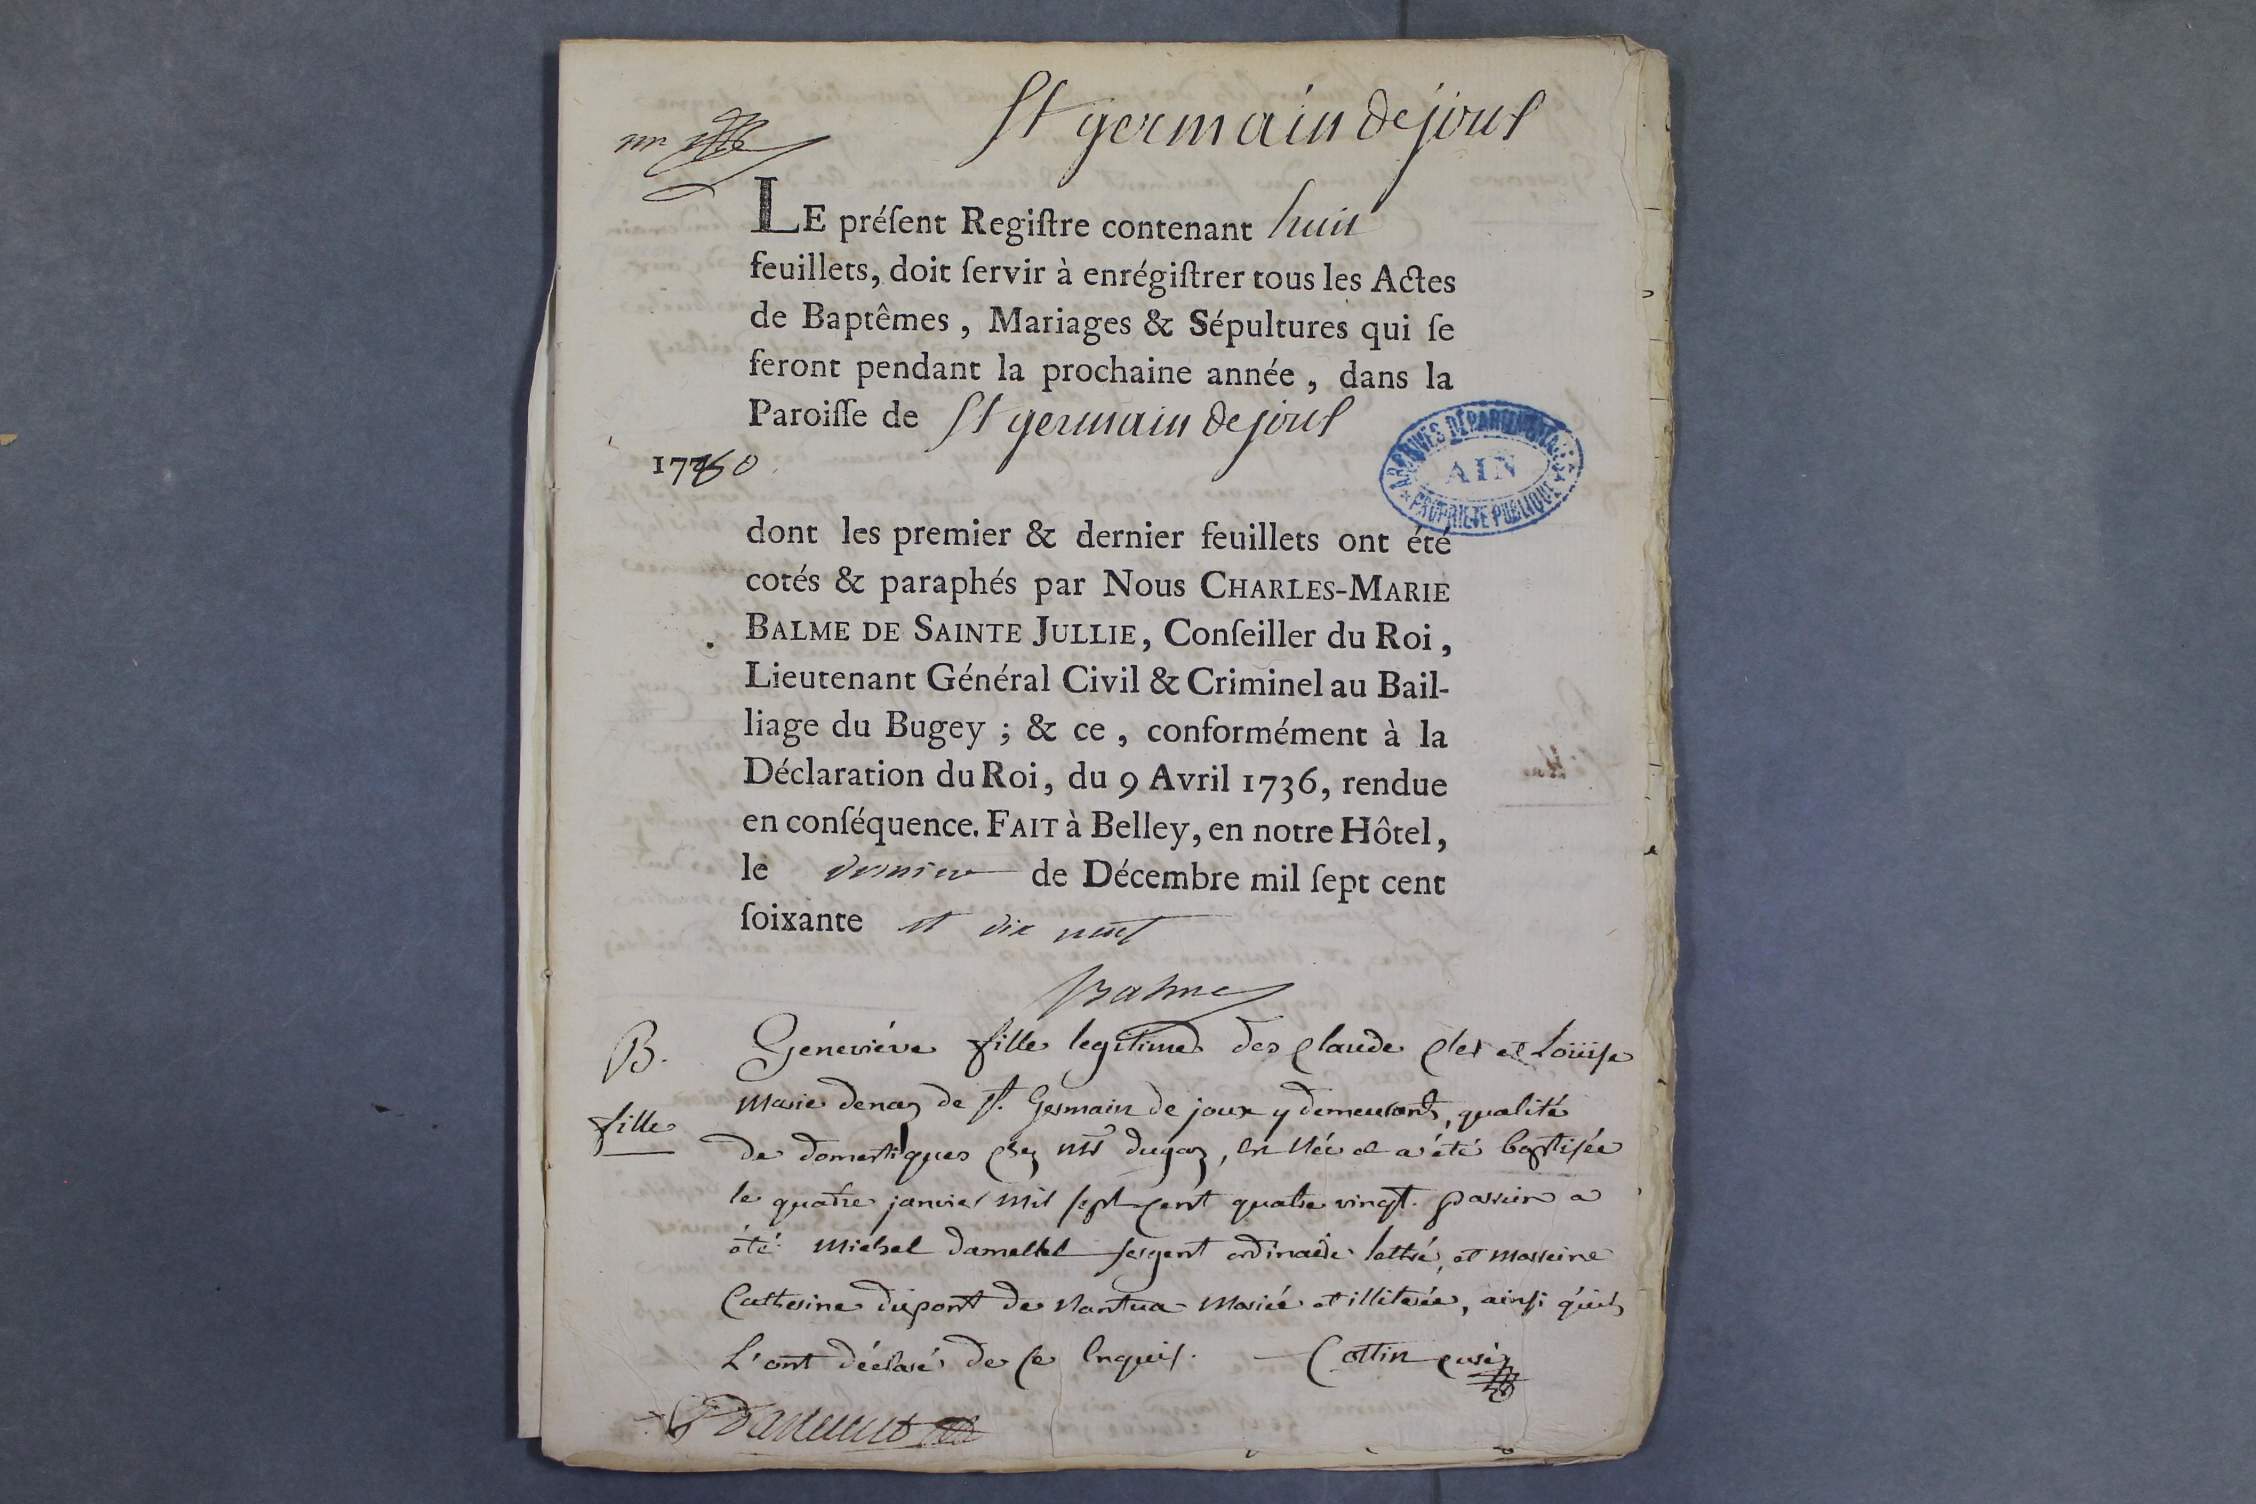 St germain de joux
LE préſent Regiſtre contenant huit
feuillets, doit ſervir à enrégiſtrer tous les Actes
de Baptêmes, Mariages & Sépultures qui ſe
feront pendant la prochaine année, dans la
Paroiſſe de St germain de joux
1780
ARCHIVES DÉPARTEMENTALES
AIN
PROPRIÉTÉ PUBLIQUE
dont les premier & dernier feuillets ont été
cotés & paraphés par Nous CHARLES-MARIE
BALME DE SAINTE JULLIE, Conſeiller du Roi,
Lieutenant Général Civil & Criminel au Bail-
liage du Bugey ; & ce, conformément à la
Déclaration du Roi, du 9 Avril 1736, rendue
en conſéquence. FAIT à Belley, en notre Hôtel,
le dernier de Décembre mil ſept cent
ſoixante et dix neuf
Balme
B. Geneviéve fille legitime de Claude et Loüise
fille
Marie de St. Germain de joux y demeurant, qualité
de domestiques chez Mr dugaz, est Née et a été baptisée
le quatre janvier mil sept cent quatre vingt. parrein a
été Michel sergent ordinaire lettré, et marreine
Catherine dupont de Nantua Mariée et illiterée, ainsi qu'ils
L'ont déclaré de ce Enquis. Cottin curé